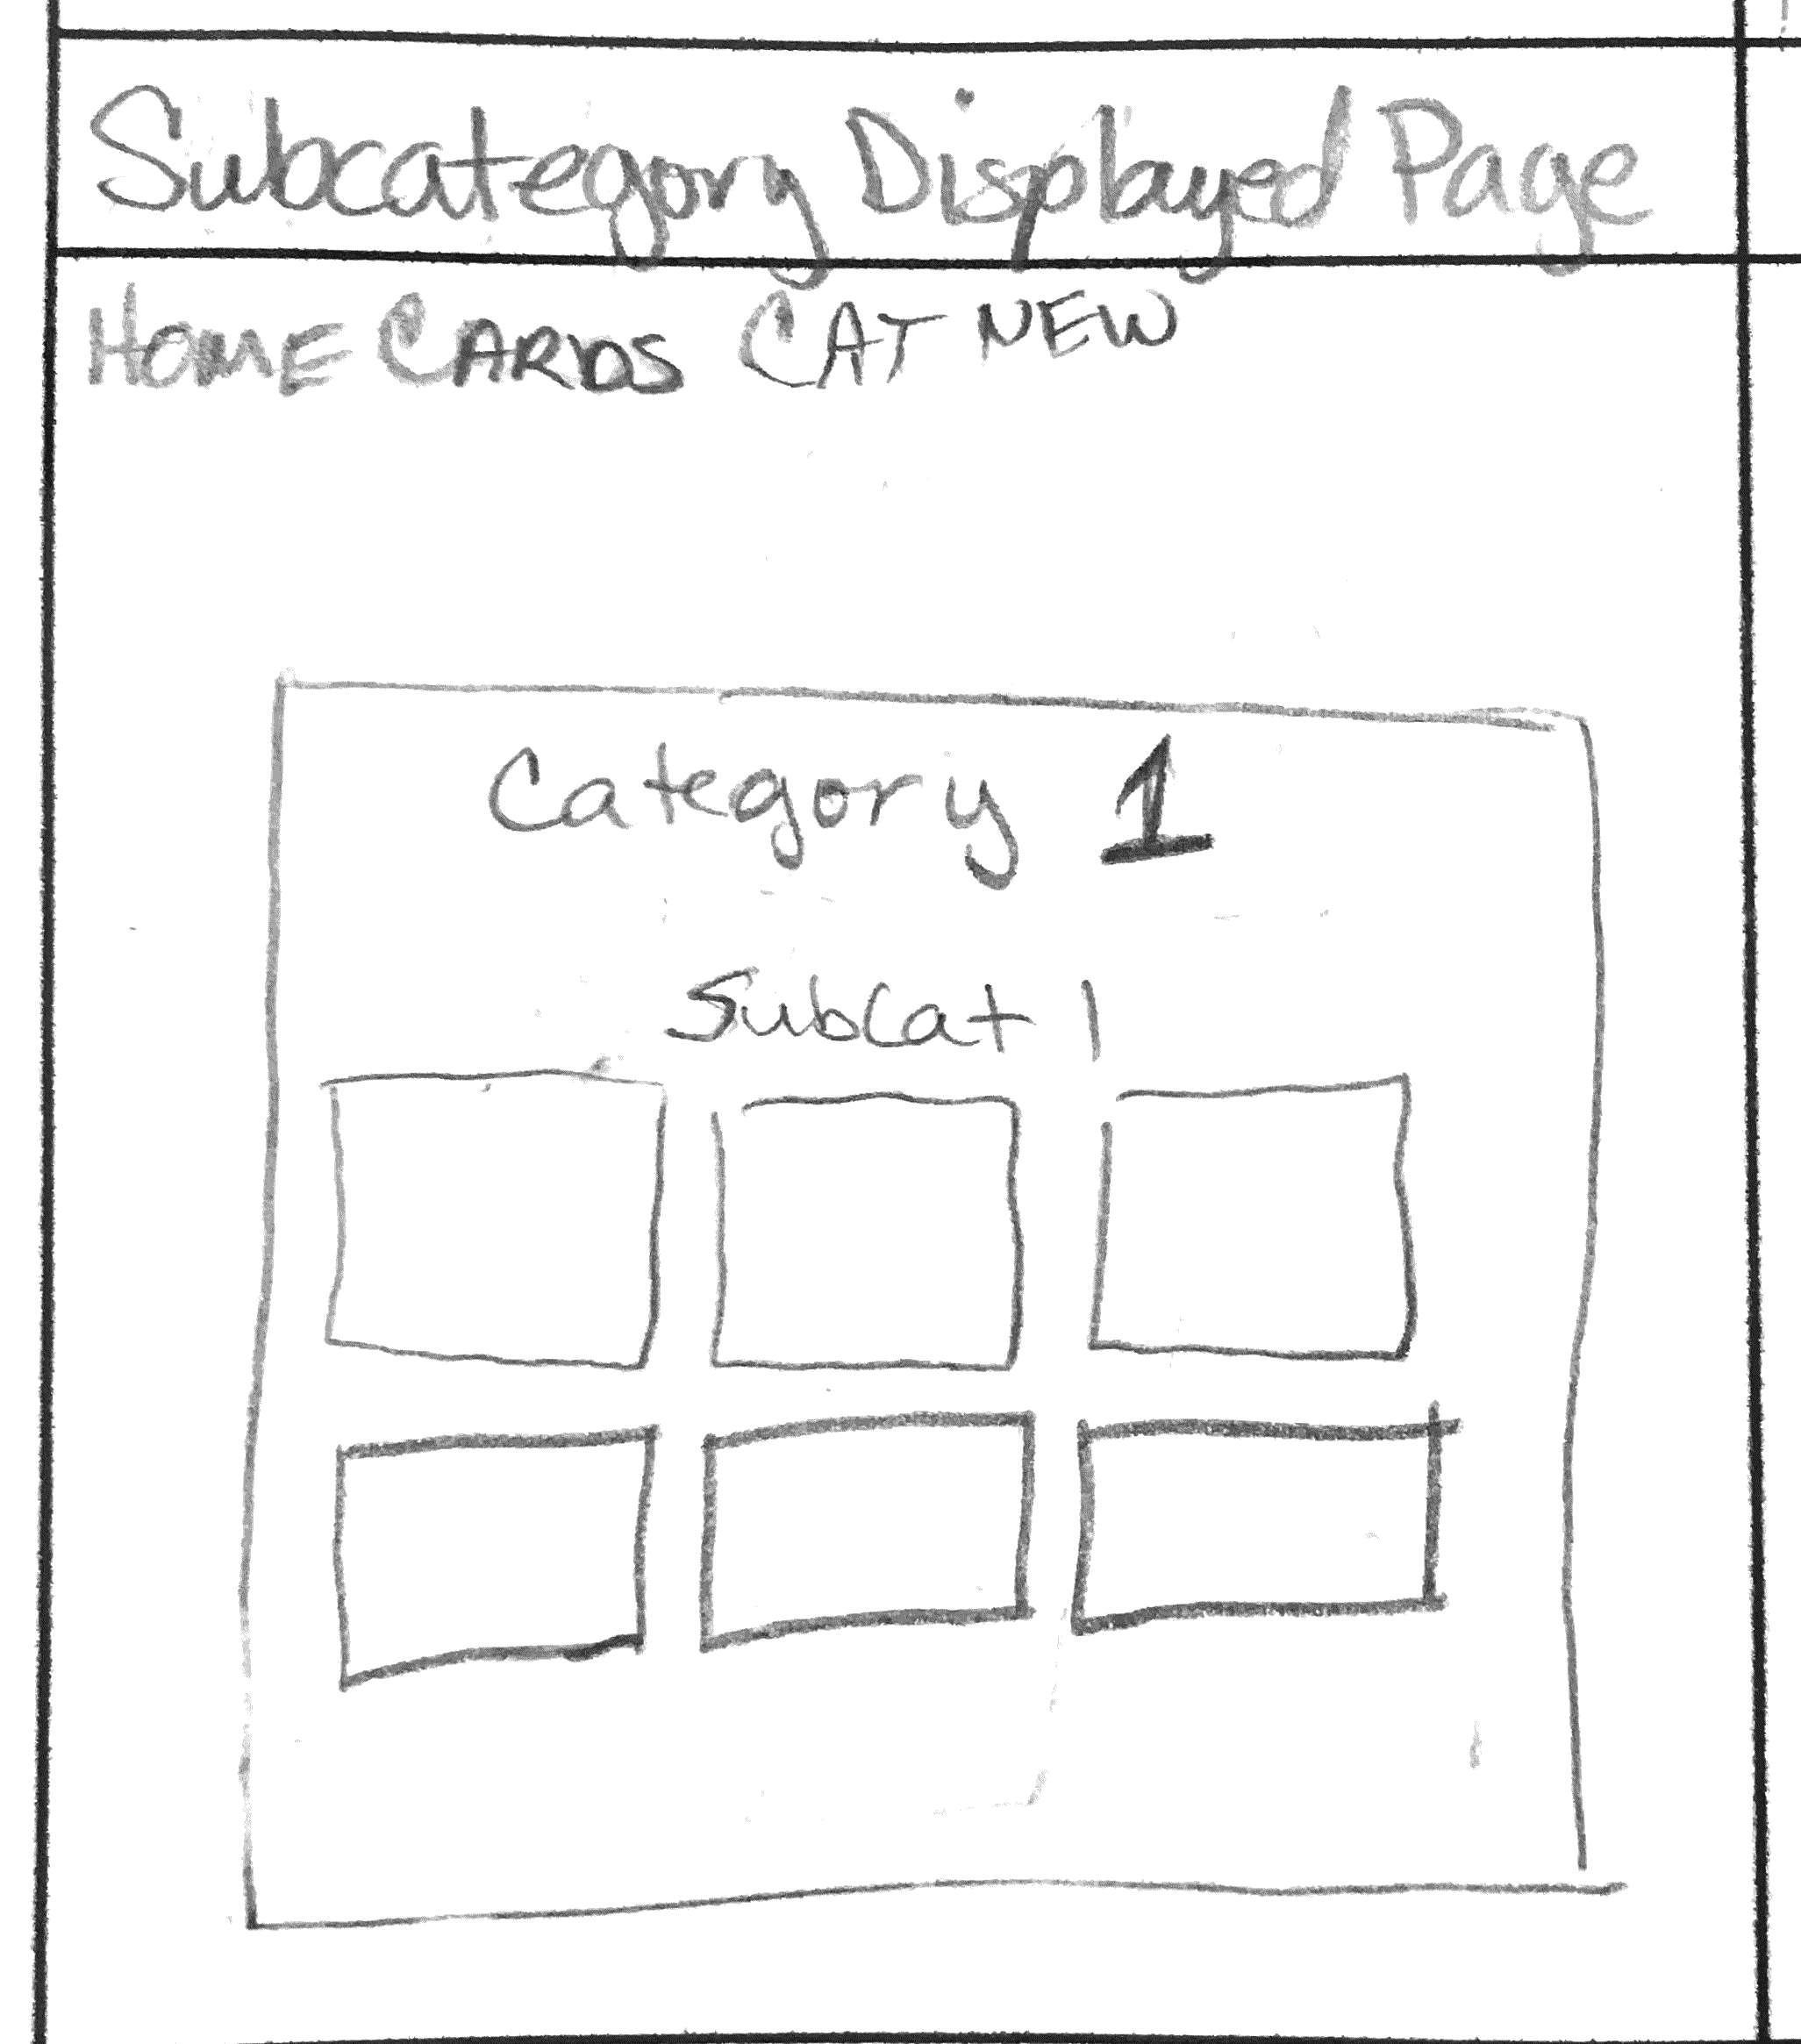 Subcategory Displayed Page
HOME CARDS CAT NEW
Category 1
Subcat 1